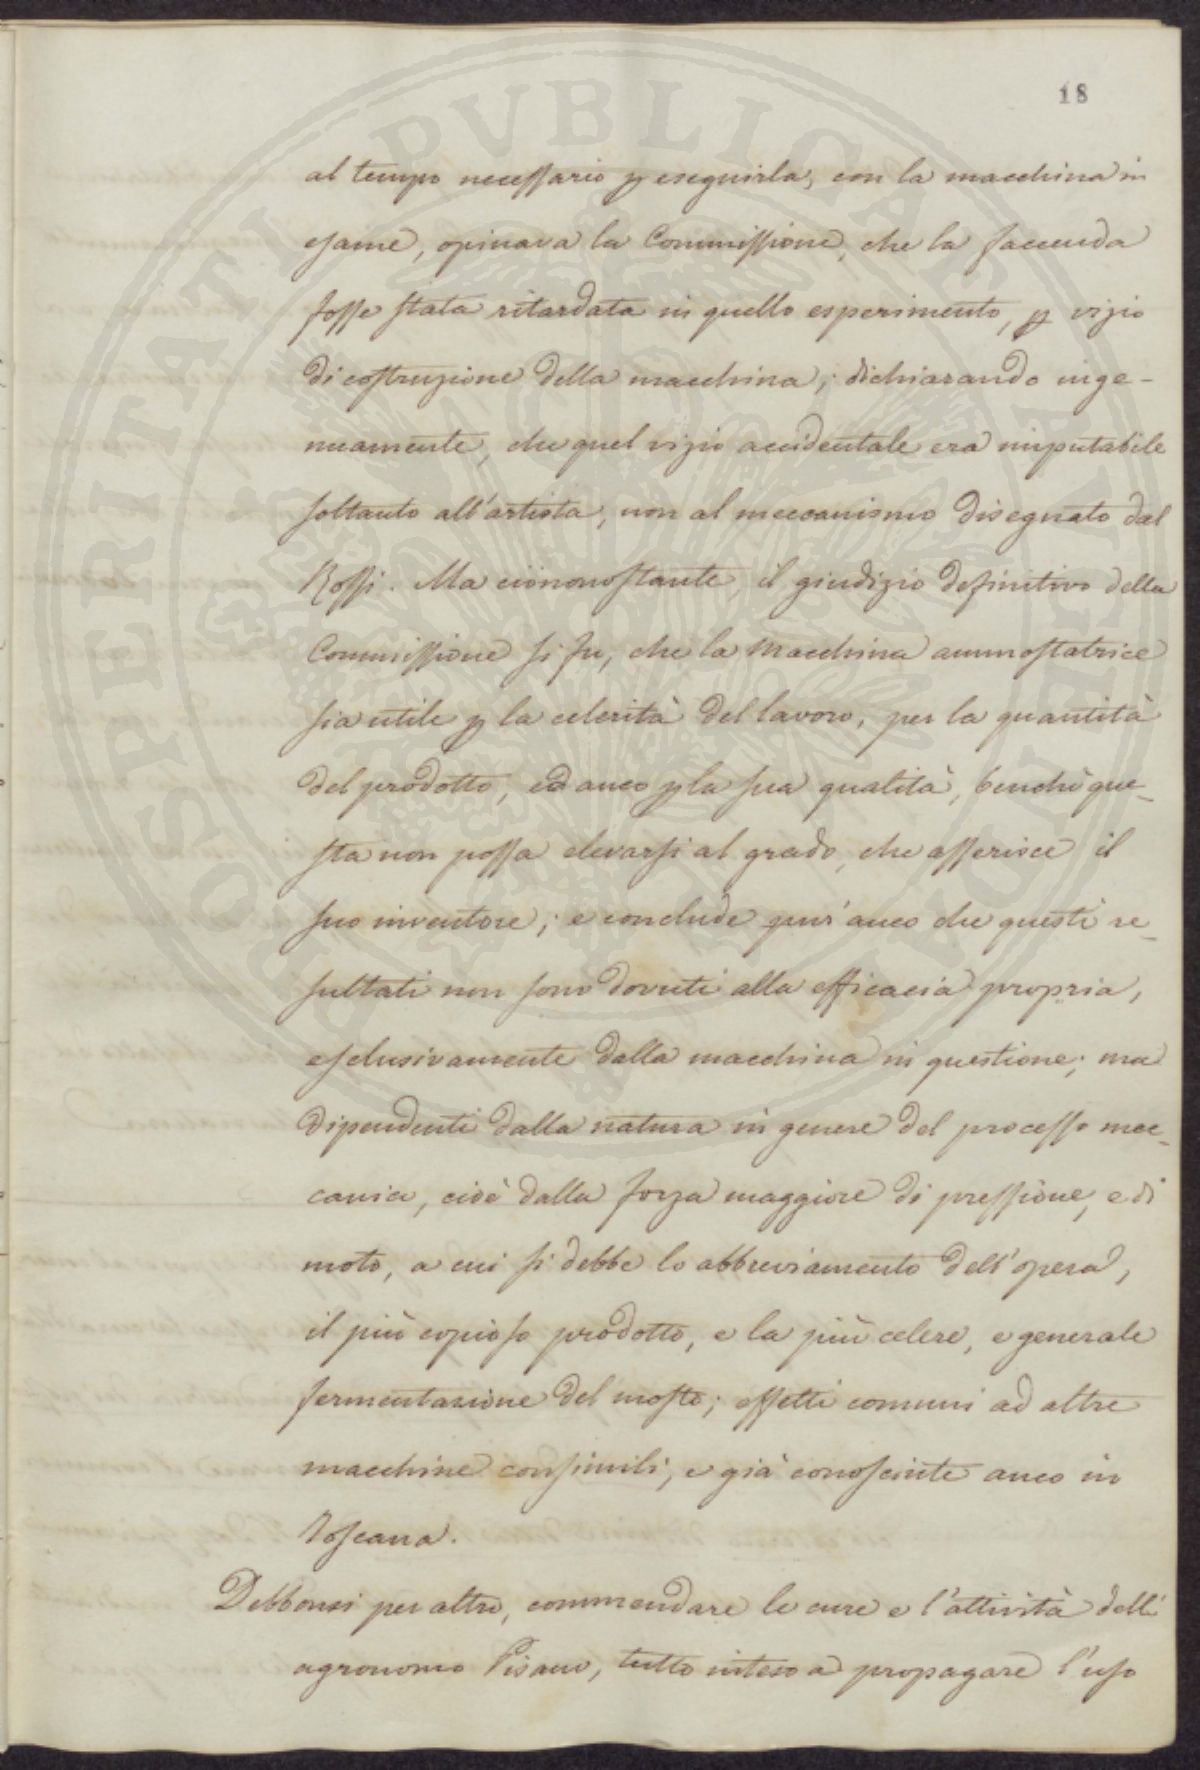 18
al tempo necessario p eseguirla, con la macchina in
esame, opinava la Commissione, che la faccenda
fosse stata ritardata in quello esperimento, p vizio
di costruzione della macchina; dichiarando inge-
nuamente, che quel vizio accidentale era imputabile
soltanto all'artista, non al meccanismo disegnato dal
Rossi. Ma ciònonostante, il giudizio definitivo della
Commissione si fu, che la Macchina ammostatrice
sia utile p la celerità del lavoro, per la quantità
del prodotto, ed anco p la sua qualità, benchè que-
sta non possa elevarsi al grado, che asserisce il
suo inventore; e conclude pur'anco che questi re-
sultati non sono dovuti alla efficacia propria,
esclusivamente dalla macchina in questione; ma
dipendenti dalla natura in genere del processo mec-
canico, cioè dalla forza maggiore di pressione, e di
moto, a cui si debbe lo abbreviamento dell'opera,
il più copioso prodotto, e la più celere, e generale
fermentazione del mosto; effetti comuni ad altre
macchine consimili, e già conosciute anco in
Toscana.
Debbonsi per altro, commendare le cure e l'attività dell'
agronomo Pisano, tutto inteso a propagare l'uso
PROSPERITATI PVBLICAE AVGENDAE